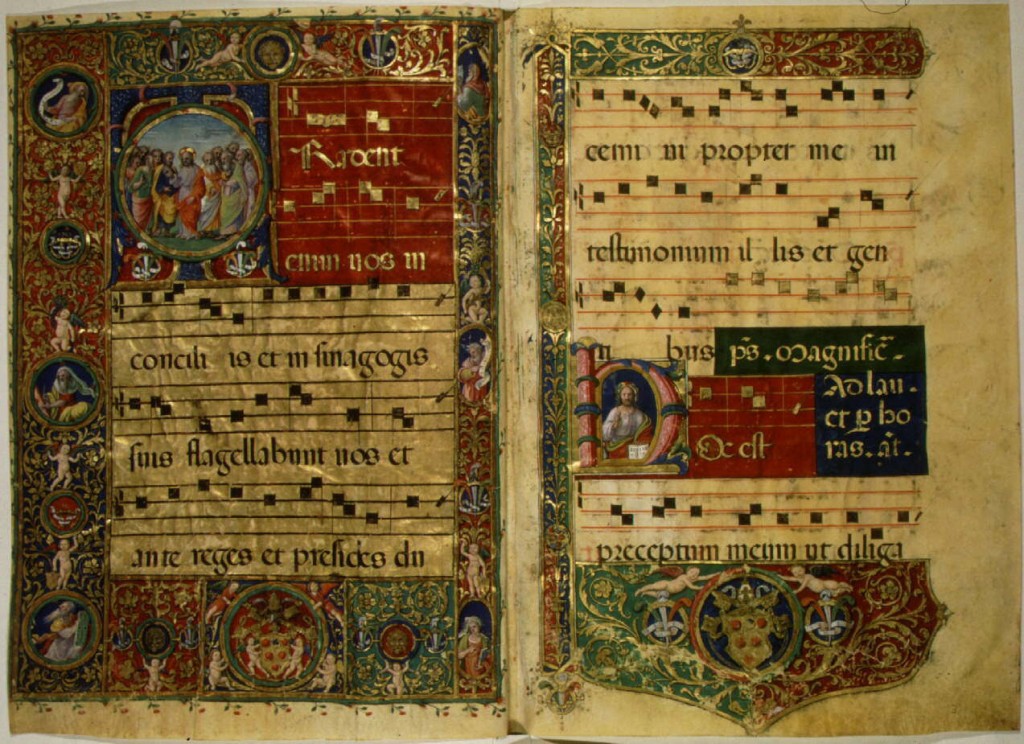 Tradent
enim uos in
concili is et in sinagogis
suis flagellabunt uos et
ante reges et presides du
cemi ni propter me in
testimonium il lis et gen
ti bus ps. Magnific̄.
Hoc est
Ad lau-
et p̱ ho
ras. an̄t.
preceptum meum ut diliga